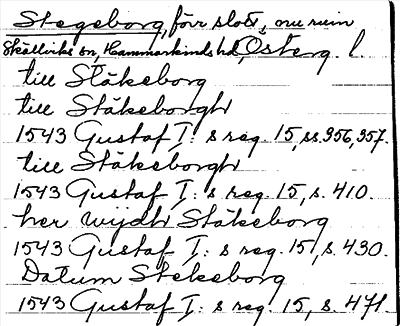 Stegeborg, förr slott, nu ruin
Skällviks sn, Hammarkinds hd, Österg. l.
till Stäkeborg
till Stäkeborgh
1543 Gustaf I:s reg. 15, ss. 356, 357.
till Stäkeborgh
1543 Gustaf I:s reg. 15, s. 410.
her wijdh Stäkeborg
1543 Gustaf I:s reg. 15, s. 430.
Datum Stekeborg
1543 Gustaf I:s reg. 15, s. 471.